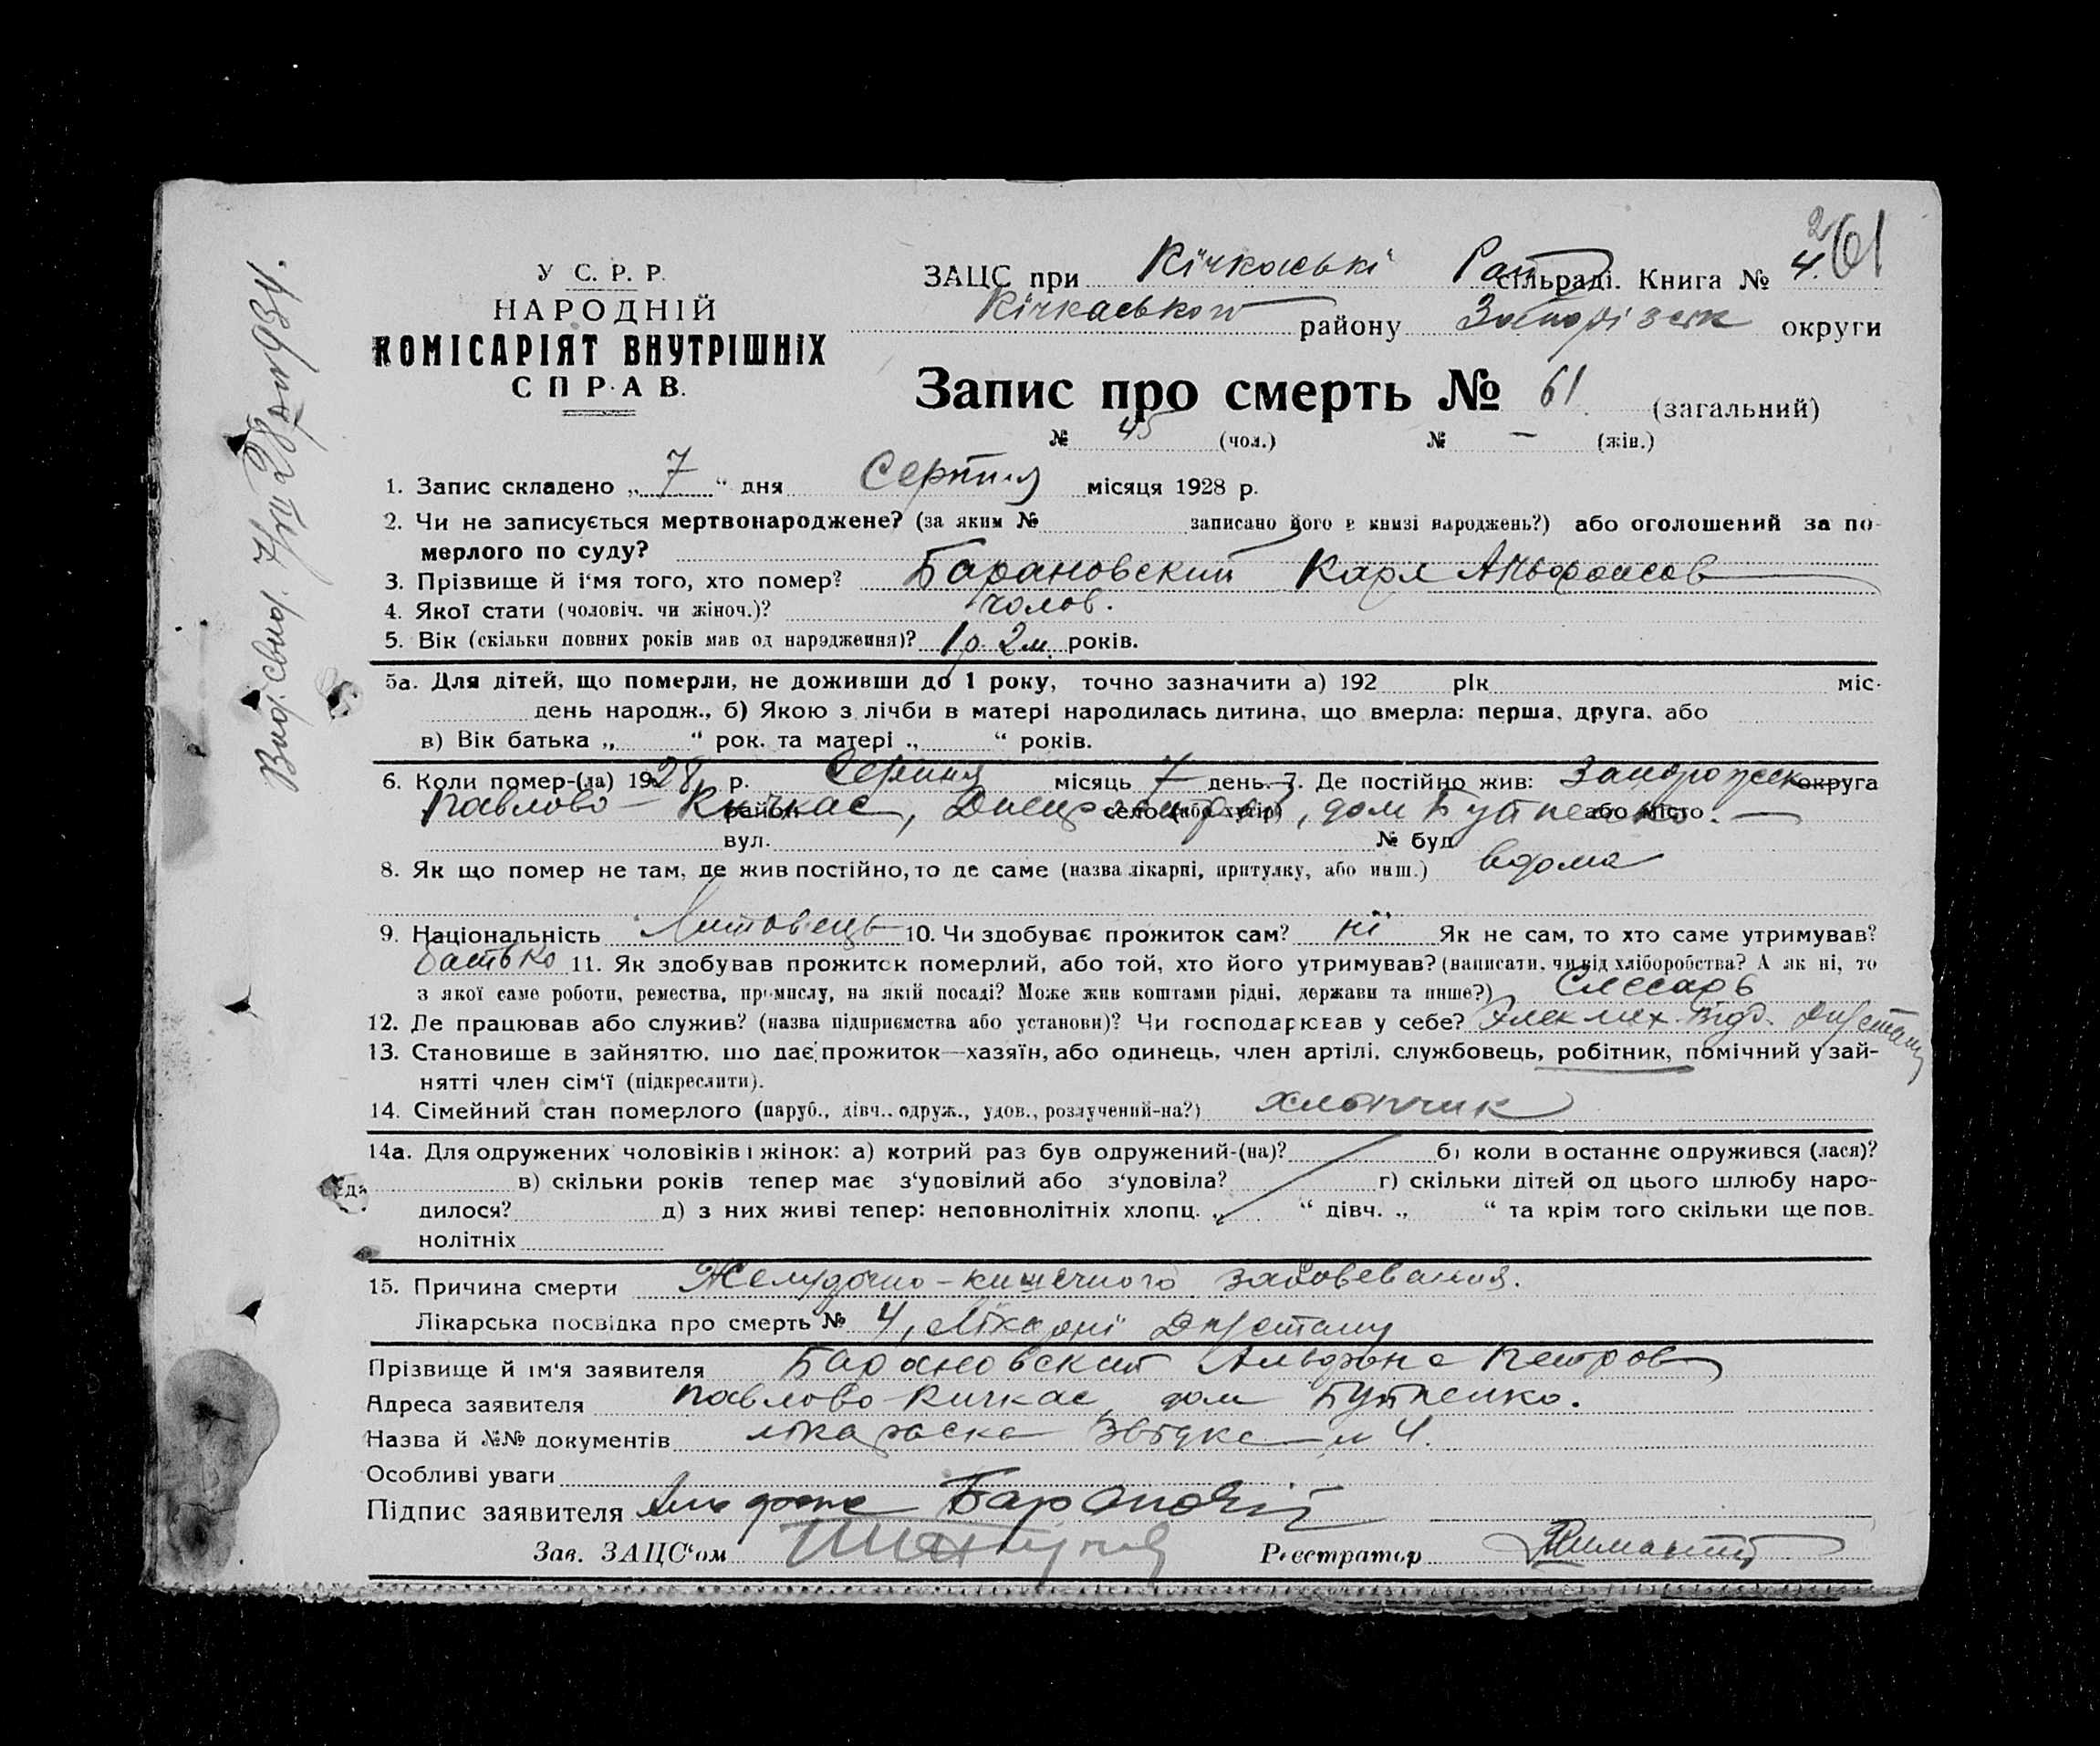 261
У С. Р. Р.
НАРОДНІЙ
КОМІСАРІЯТ ВНУТРІШНІХ
СПРАВ.
ЗАЦС при Кічкаські Рай сільраді. Книга № 4.
Кічкаськом району Запорізьк округи
Запис про смерть № 61 (загальний)
№ 45 (чол.) № — (жін.)
1. Запис складено „ 7 “ дня Серпня місяця 1928 р.
2. Чи не записується мертвонароджене? (за яким № записано його в книзі народжень?) або оголошений за по-
мерлого по суду?
3. Прізвище й і'мя того, хто помер? Барановский Карл Альфонсов
4. Якої стати (чоловіч. чи жіноч.)? чолов.
5. Вік (скільки повних років мав од народження)? 1 р. 2 м. років.
5а. Для дітей, що померли, не доживши до 1 року, точно зазначити а) 192 рік міс.
день народж., б) Якою з лічби в матері народилась дитина, що вмерла: перша, друга, або
в) Вік батька „ “ рок. та матері „ “ років.
6. Коли помер-(ла) 1928 р. Серпня місяць 7 день. 7. Де постійно жив: округа
Павлово - Кичкас, район село (або хутір) , дом Бутпенко. або місто
вул. № буд.
8. Як що помер не там, де жив постійно, то де саме (назва лікарні, притулку, або инш.) вдома
9. Національність Литовець 10. Чи здобуває прожиток сам? ні Як не сам, то хто саме утримував?
батько 11. Як здобував прожиток померлий, або той, хто його утримував? (написати, чи від хліборобства? А як ні, то
з якої саме роботи, ремества, промислу, на якій посаді? Може жив коштами рідні, держави та инше?) Слесарь
12. Де працював або служив? (назва підприємства або установи)? Чи господарював у себе?
13. Становище в зайняттю, що дає прожиток—хазяїн, або одинець, член артілі, службовець, робітник, помічний у зай-
нятті член сім'ї (підкреслити).
14. Сімейний стан померлого (паруб., дівч., одруж., удов., розлучений-на?) хлопчик
14а. Для одружених чоловіків і жінок: а) котрий раз був одружений-(на)? б) коли в останнє одружився (лася)?
в) скільки років тепер має з'удовілий або з'удовіла? г) скільки дітей од цього шлюбу наро-
дилося? д) з них живі тепер: неповнолітніх хлопц. „ “ дівч. „ “ та крім того скільки ще пов-
нолітніх
15. Причина смерти Желудочно-кишечного заболевания.
Лікарська посвідка про смерть № 4, Лікарні Дніпрстану
Прізвище й ім'я заявителя Барановский Альфонс Петров
Адреса заявителя Павлово-Кичкас, дом Бутпенко.
Назва й №№ документів лікарська № 4.
Особливі уваги
Підпис заявителя Альфонс
Зав. ЗАЦС'ом Реєстратор